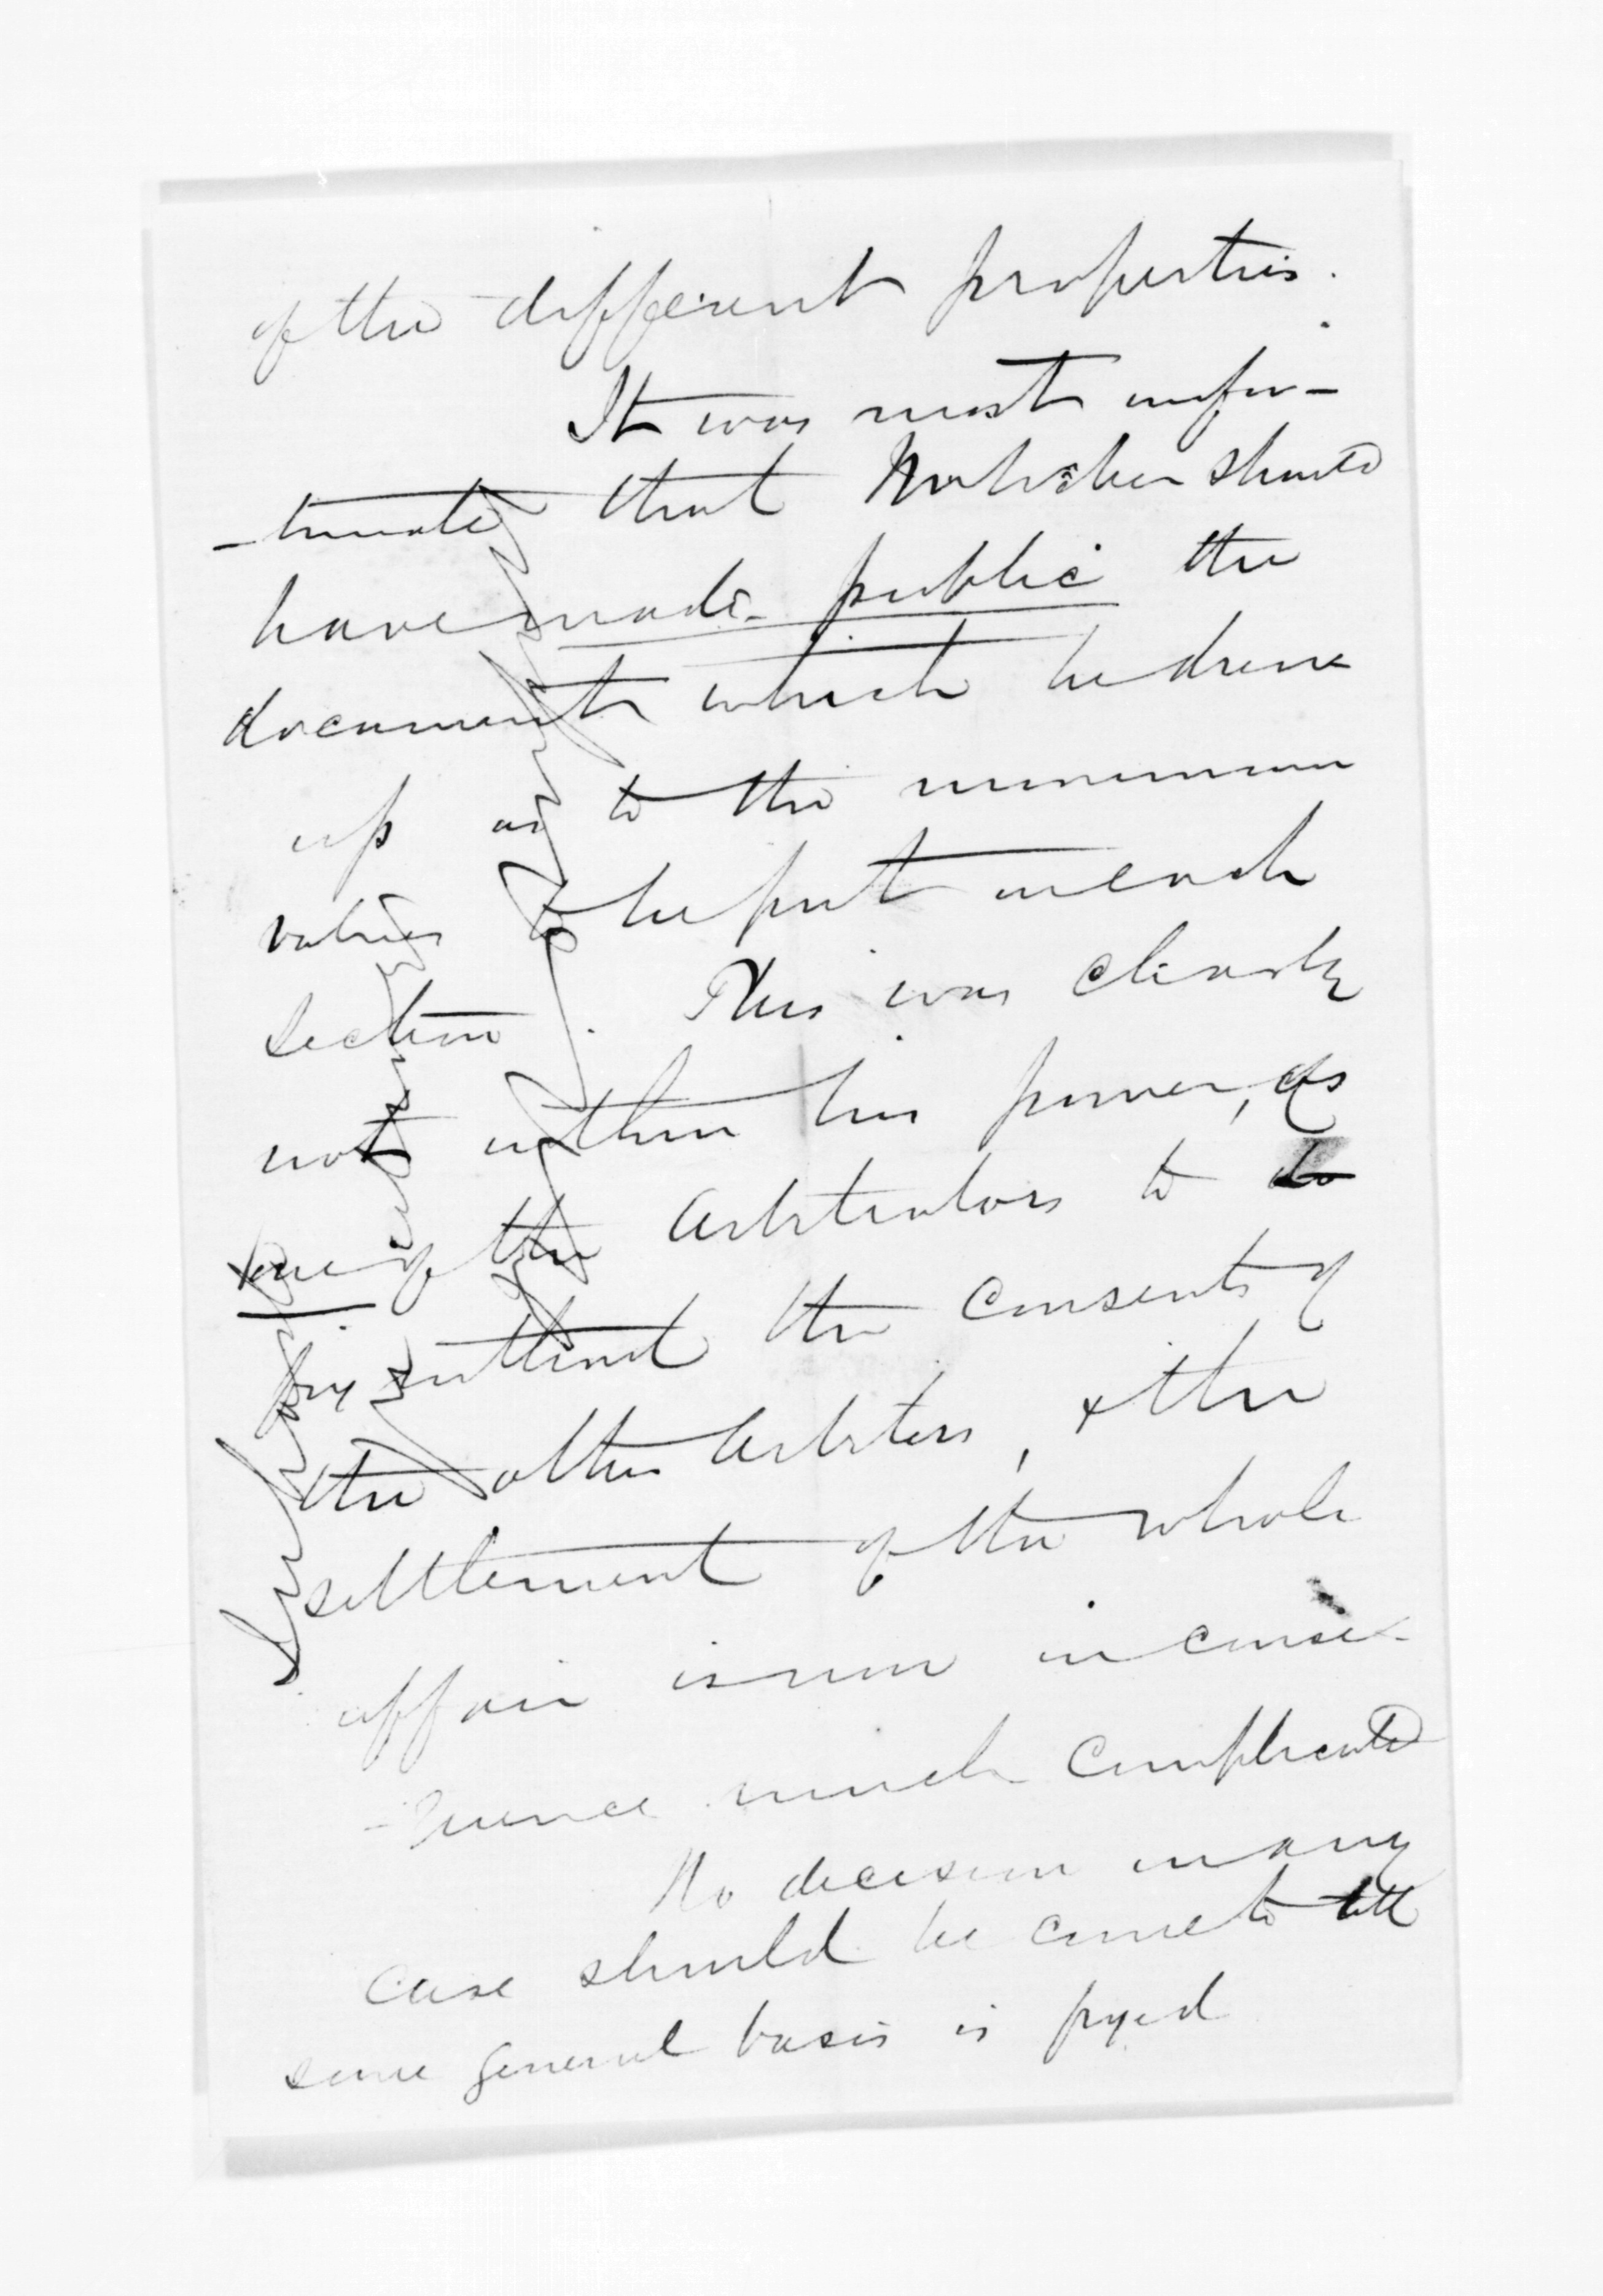 of the different properties.
It was most unfor-
-tunate that should
have made public the
documents which he drew
up as to the minimum
values to be put in each
section. This was clearly
not within his power, as
one of the Arbitrators to do
by without the consents of
the other Arbiters, & the
settlement of the whole
affair is now in conse-
-quence much complicated
No decision in any
case should be come to till
some general basis is fixed